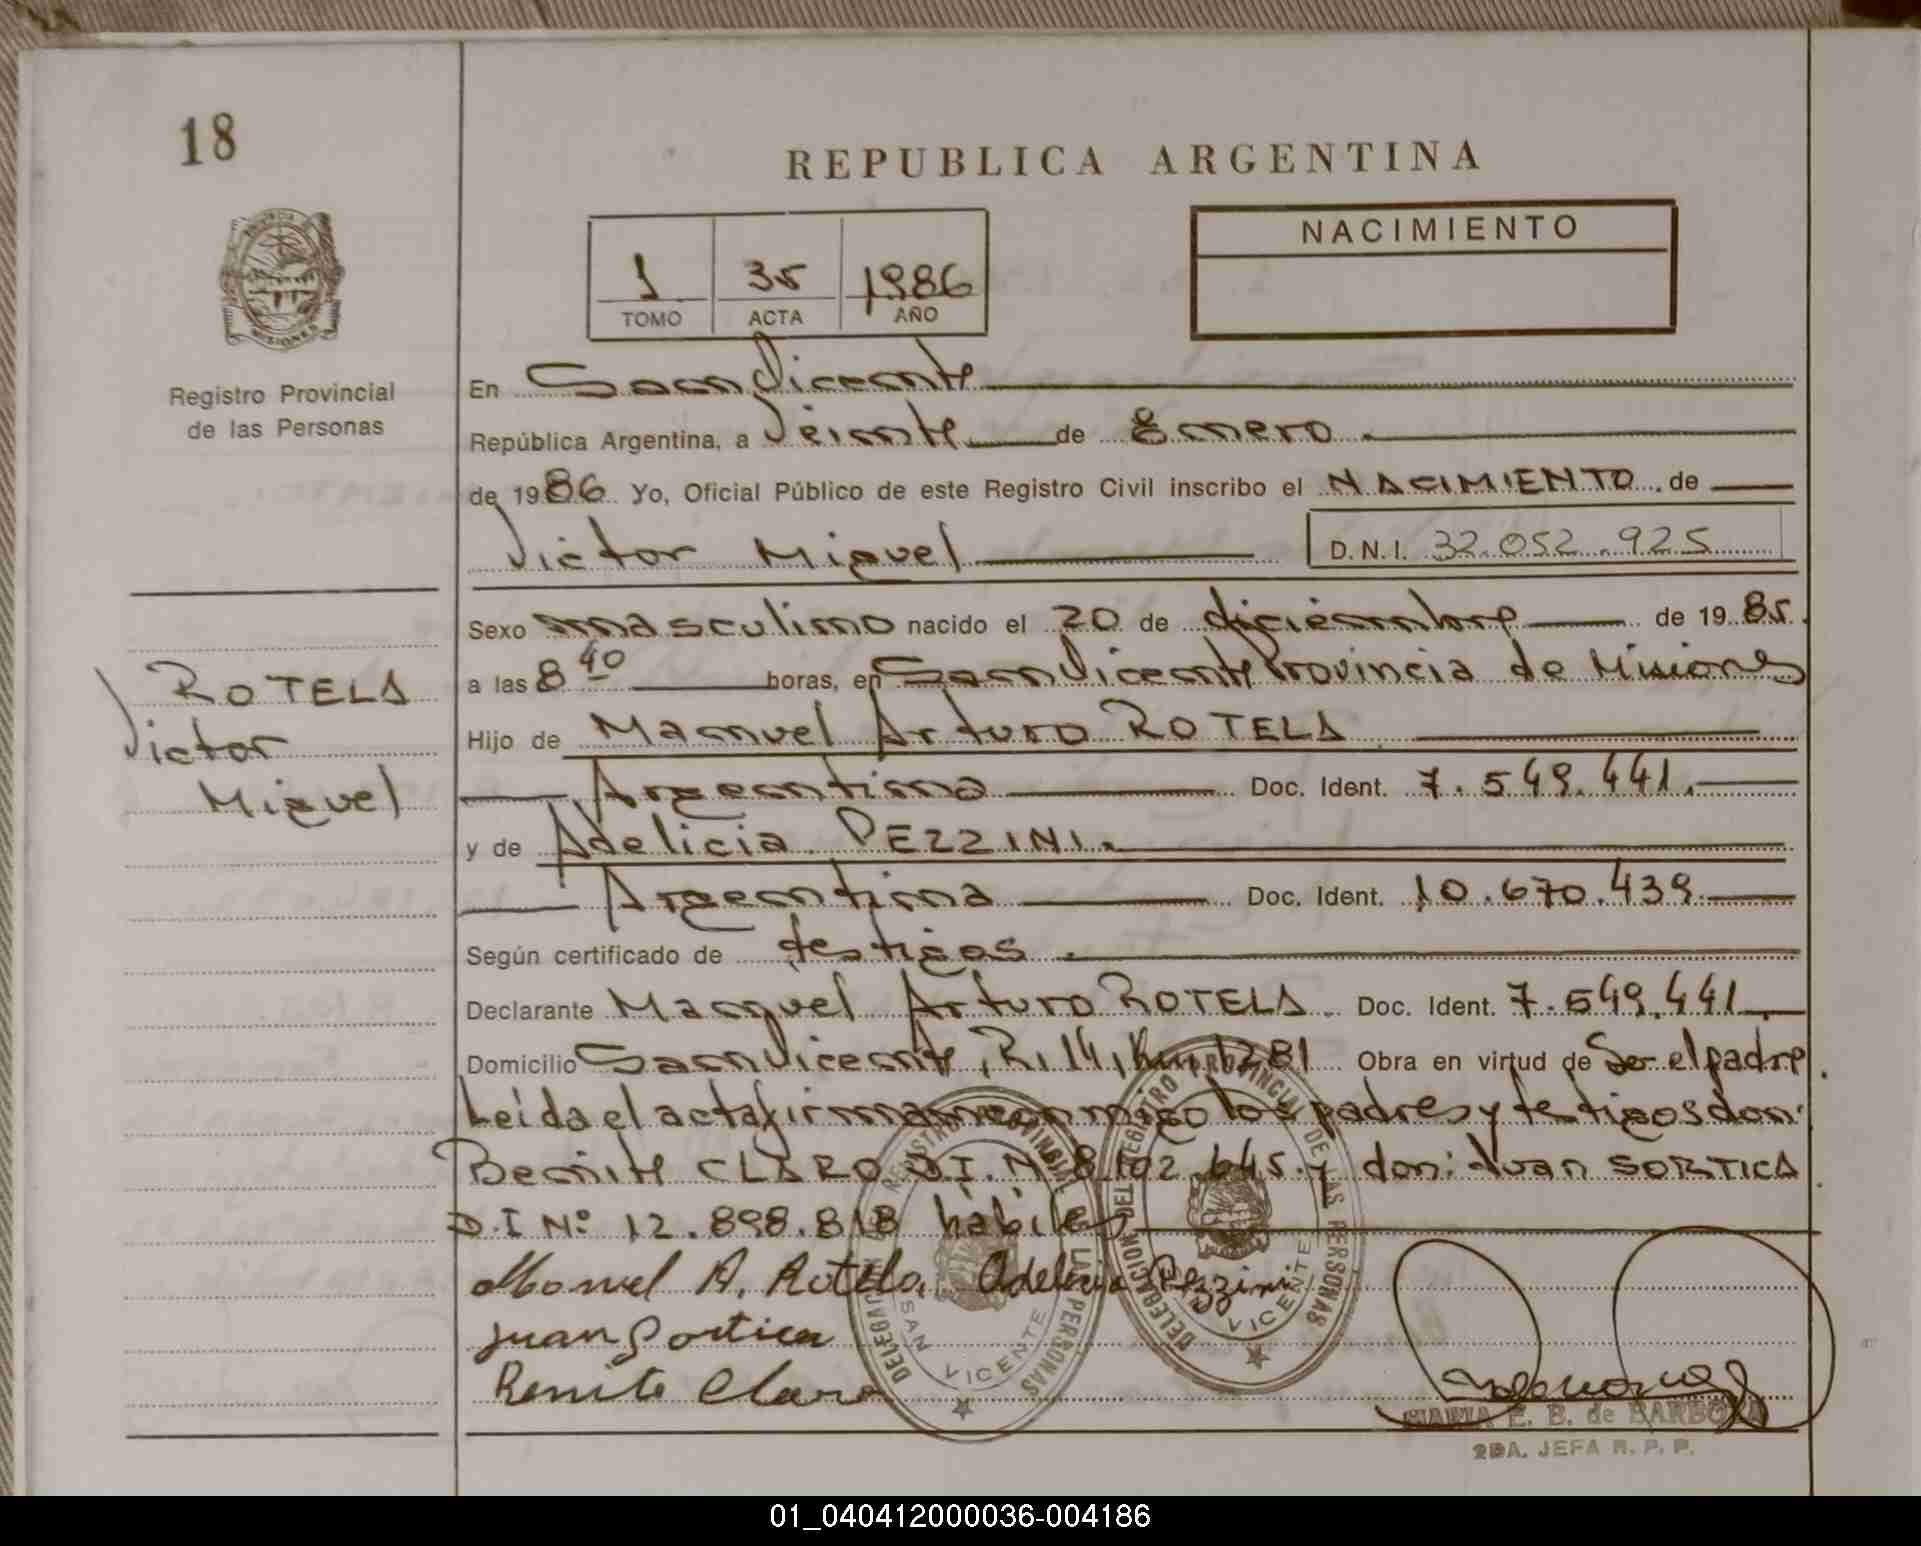 18
REPUBLICA ARGENTINA
PROVINCIA
MISIONES
1 35 1986
TOMO ACTA AÑO
NACIMIENTO
Registro Provincial
de las Personas
En San Vicente
República Argentina, a Veinte de Enero
de 1986 Yo, Oficial Público de este Registro Civil inscribo el NACIMIENTO de
Victor Miguel D.N.I. 32.052.925
Sexo masculino nacido el 20 de diciembre de 1985.
ROTELA
Victor
Miguel
a las 8 40 horas, en San Vicente Provincia de Misiones
Hijo de Manuel Arturo ROTELA
Argentina Doc. Ident. 7.549.441.
y de Adelicia PEZZINI.
Argentina Doc. Ident. 10.670.439
Según certificado de testigos.
Declarante Manuel Arturo ROTELA. Doc. Ident. 7.549.441
Domicilio San Vicente, R. 14, Km. 1281 Obra en virtud de Ser el padre.
Leída el acta firman conmigo los padres y testigos don:
Benito CLARO D.I.N° 8.102.645. y don: Juan SORTICA
D.I N° 12.898.818 hábiles
Manuel A. Rotela. Adelicia Pezzini
Juan Sortica
Benito Claro
DELEGACION DEL REGISTRO PROVINCIAL DE LAS PERSONAS
SAN VICENTE
DELEGACION DEL REGISTRO PROVINCIAL DE LAS PERSONAS
VICENTE
MARIA E. B. de BARBOZA
2DA. JEFA R. P. P.
01_040412000036-004186